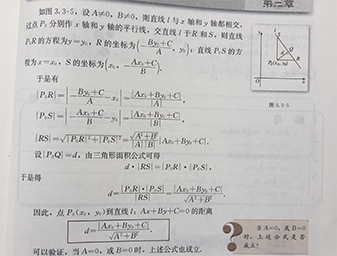 第二章
如图3.3-5，设A≠0，B≠0，则直线l与x轴和y轴都相交，
过点P₀分别作x轴和y轴的平行线，交直线l于R和S，则直线
P₀R的方程为y=y₀，R的坐标为(-(By₀+C)/A, y₀)；直线P₀S的方
程为x=x₀，S的坐标为(x₀, -(Ax₀+C)/B).
于是有
|P₀R|=|-(By₀+C)/A-x₀|=|Ax₀+By₀+C|/|A|,
|P₀S|=|-(Ax₀+C)/B-y₀|=|Ax₀+By₀+C|/|B|,
|RS|=√(|P₀R|²+|P₀S|²)=√(A²+B²)/|AB| |Ax₀+By₀+C|.
设|P₀Q|=d，由三角形面积公式可得
d·|RS|=|P₀R|·|P₀S|,
于是得
d=|P₀R|·|P₀S|/|RS|=|Ax₀+By₀+C|/√(A²+B²).
因此，点P₀(x₀, y₀)到直线l：Ax+By+C=0的距离
d=|Ax₀+By₀+C|/√(A²+B²).
可以验证，当A=0，或B=0时，上述公式也成立.
y
S
Q
R
P₀(x₀, y₀)
O
x
图3.3-5
?
当A=0，或B=0
时，上述公式是否
成立？